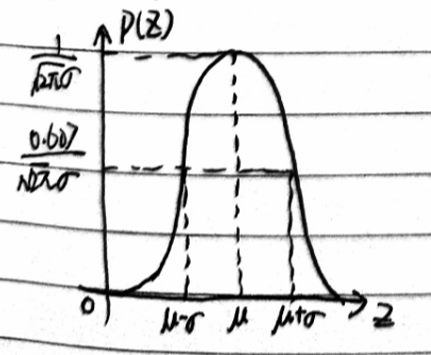 P(Z)
1/√2πσ
0.607/√2πσ
0 μ-σ μ μ+σ Z